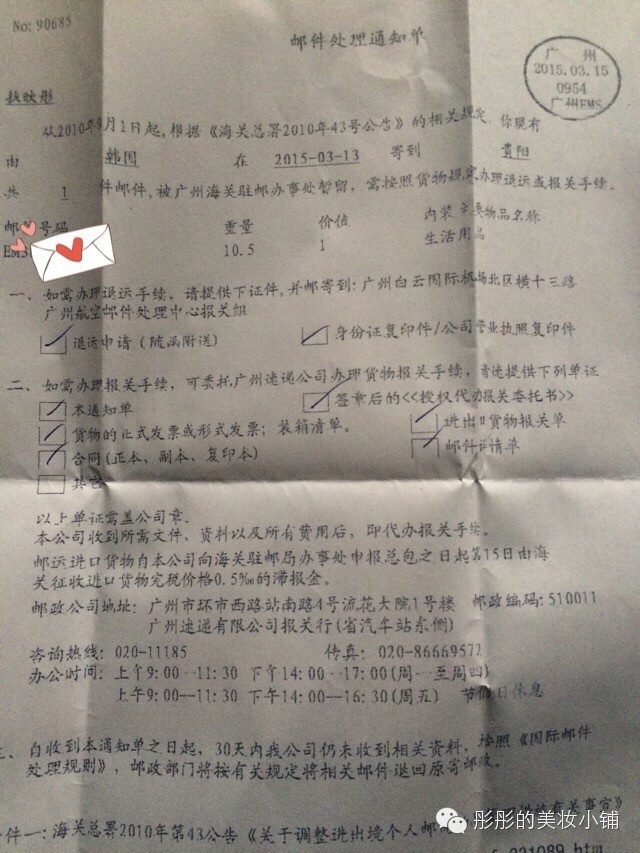 No: 90685
邮件处理通知单
广州
2015.03.15
0954
广州EMS
扶映彤
从2010年9月1日起,根据《海关总署2010年43号公告》的相关规定,你现有
由 韩国 在 2015-03-13 寄到 贵阳
共 1 件邮件,被广州海关驻邮办事处暂留,需按照货物规定办理退运或报关手续。
邮件号码 重量 价值 内装主要物品名称
EM3 10.5 1 生活用品
一、如需办理退运手续,请提供下证件,并邮寄到:广州白云国际机场北区横十三路
广州航空邮件处理中心报关组
退运申请(随函附送) 身份证复印件/公司营业执照复印件
二、如需办理报关手续,可委托广州速递公司办理货物报关手续,请速提供下列单证
本通知单 签章后的<<授权代办报关委托书>>
货物的正式发票或形式发票;装箱清单。 进出口货物报关单
合同(正本、副本、复印本) 邮件详情单
其它
以上单证需盖公司章。
本公司收到所需文件、资料以及所有费用后,即代办报关手续。
邮运进口货物自本公司向海关驻邮局办事处申报总包之日起第15日由海
关征收进口货物完税价格0.5‰的滞报金。
邮政公司地址: 广州市环市西路站南路4号流花大院1号楼 邮政编码:510011
广州速递有限公司报关行(省汽车站东侧)
咨询热线: 020-11185 传真: 020-86669572
办公时间: 上午9:00--11:30 下午14:00--17:00(周一至周四)
上午9:00--11:30 下午14:00--16:30(周五) 节假日休息
三、自收到本通知单之日起,30天内我公司仍未收到相关资料,按照《国际邮件
处理规则》,邮政部门将按有关规定将相关邮件退回原寄邮政。
件一:海关总署2010年第43公告《关于调整进出境个人邮 有关事宜》
031089.htm
彤彤的美妆小铺